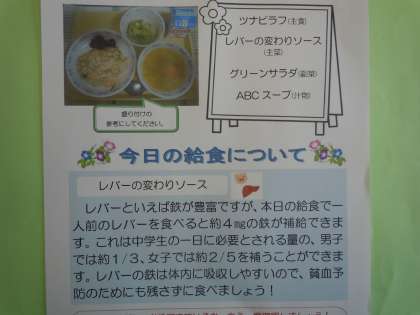 ツナピラフ(主食)
レバーの変わりソース
(主菜)
グリーンサラダ(副菜)
ABCスープ(汁物)
盛り付けの
参考にしてください。
今日の給食について
レバーの変わりソース
レバーといえば鉄が豊富ですが、本日の給食で一
人前のレバーを食べると約4mgの鉄が補給できま
す。これは中学生の一日に必要とされる量の、男子
では約1/3、女子では約2/5を補うことができま
す。レバーの鉄は体内に吸収しやすいので、貧血予
防のためにも残さずに食べましょう!